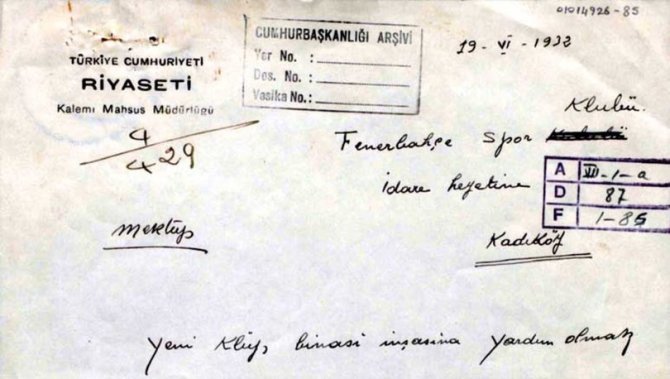 01014926-85
TÜRKİYE CUMHURİYETİ
RİYASETİ
Kalemi Mahsus Müdürlüğü
4
4 29
CUMHURBAŞKANLIĞI ARŞİVİ
Yer No. :
Dos. No. :
Vesika No.:
19-VI-1932
Klubü
Fenerbahçe Spor
idare heyetine
A VII-1-a
D 87
F 1-85
mektup
Kadıköy
Yeni Klüp binası inşasına yardım olmak